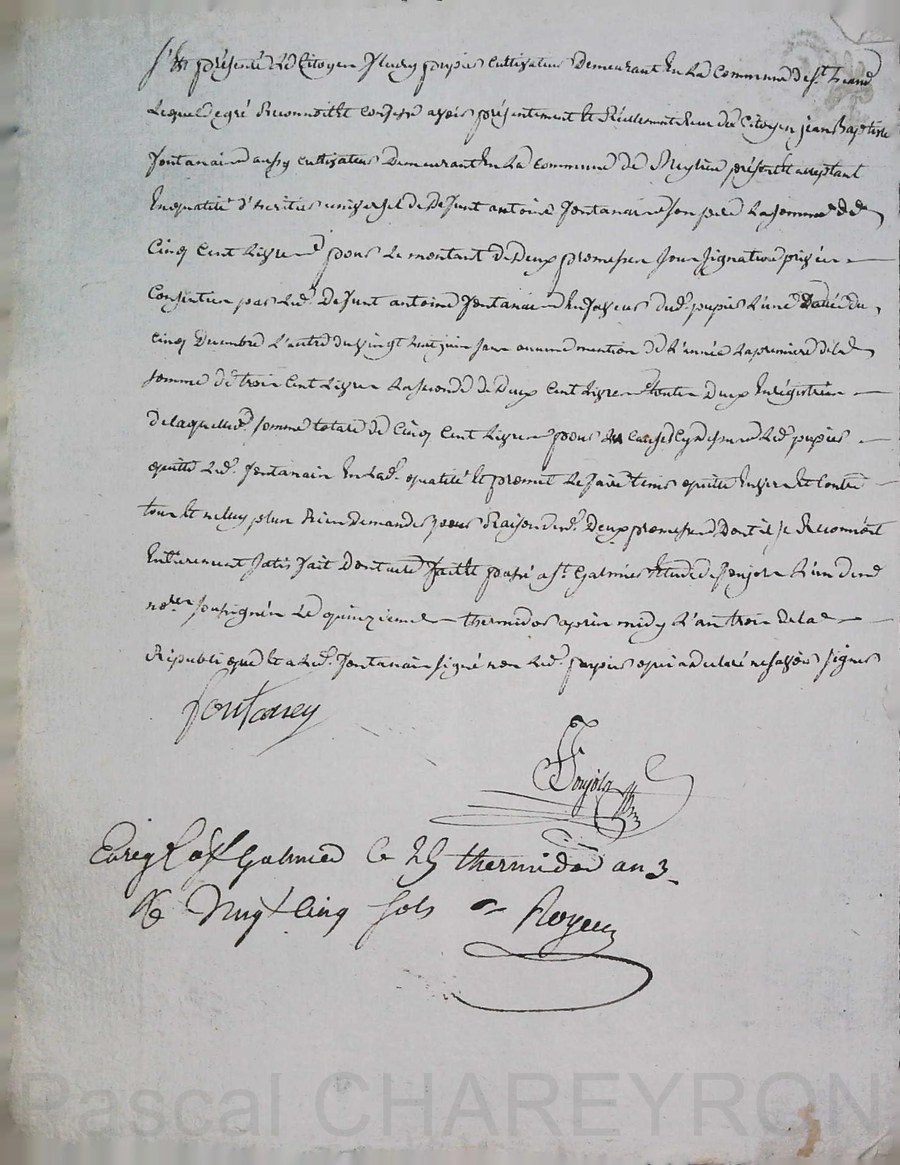 S'est présenté le Citoyen fleury pupier cultivateur demeurant en la Commune de st. heand
Lequel de gré Reconnoit et confesse avoir présentement et Réellement Reçu du Citoyen jean Baptiste
fontanain aussy cultivateur demeurant en la commune de présent et acceptant
En qualité d'heritier universel de defunt antoine fontanain son pere La somme de
Cinq Cent Livres pour Le montant de deux promesses sous signature privée
Consenties par led. defunt antoine fontanain en faveur dud. pupier L'une datée du
cinq decembre L'autre du vingt huit juin sans aucune mention de L'année La premiere de la
somme de trois Cent Livres La seconde de deux Cent Livres toutes deux Enrégistrées
de laquelle somme totale de Cinq Cent Livres pour les causes cy dessus Led. pupier
quitte Led. fontanain En lad. qualité et promet Le faire tenir quitte Envers et Contre
tous et ne luy plus Rien demander pour Raison desd. deux promesses dont il se Reconnoit
Entierement satisfait dont acte fait et passé a st. Galmier Etude de ponjols L'un desd.
nores. soussignés Le quinzieme thermidor après midy L'an trois de la
Républiq. et a Led. fontanain signé non Led. pupier qui a declaré ne savoir signer
fontaney
Ponjols
Enreg. a st Galmier le 25 thermidor an 3
R vingt cinq sols Royeux
Pascal CHAREYRON